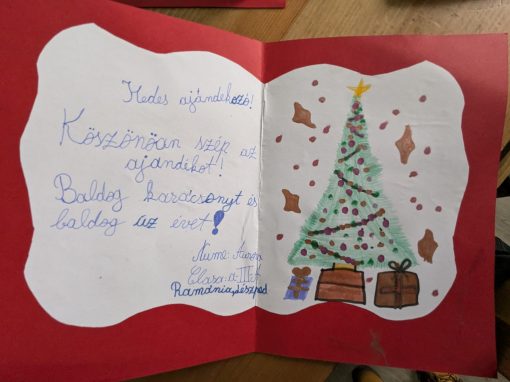 Kedes ajándékozó!
Köszönöan szép az
ajándékot!
Baldog karácsonyt és
baldog az évet!
Nume:
Clasa: a III-a
Romania,